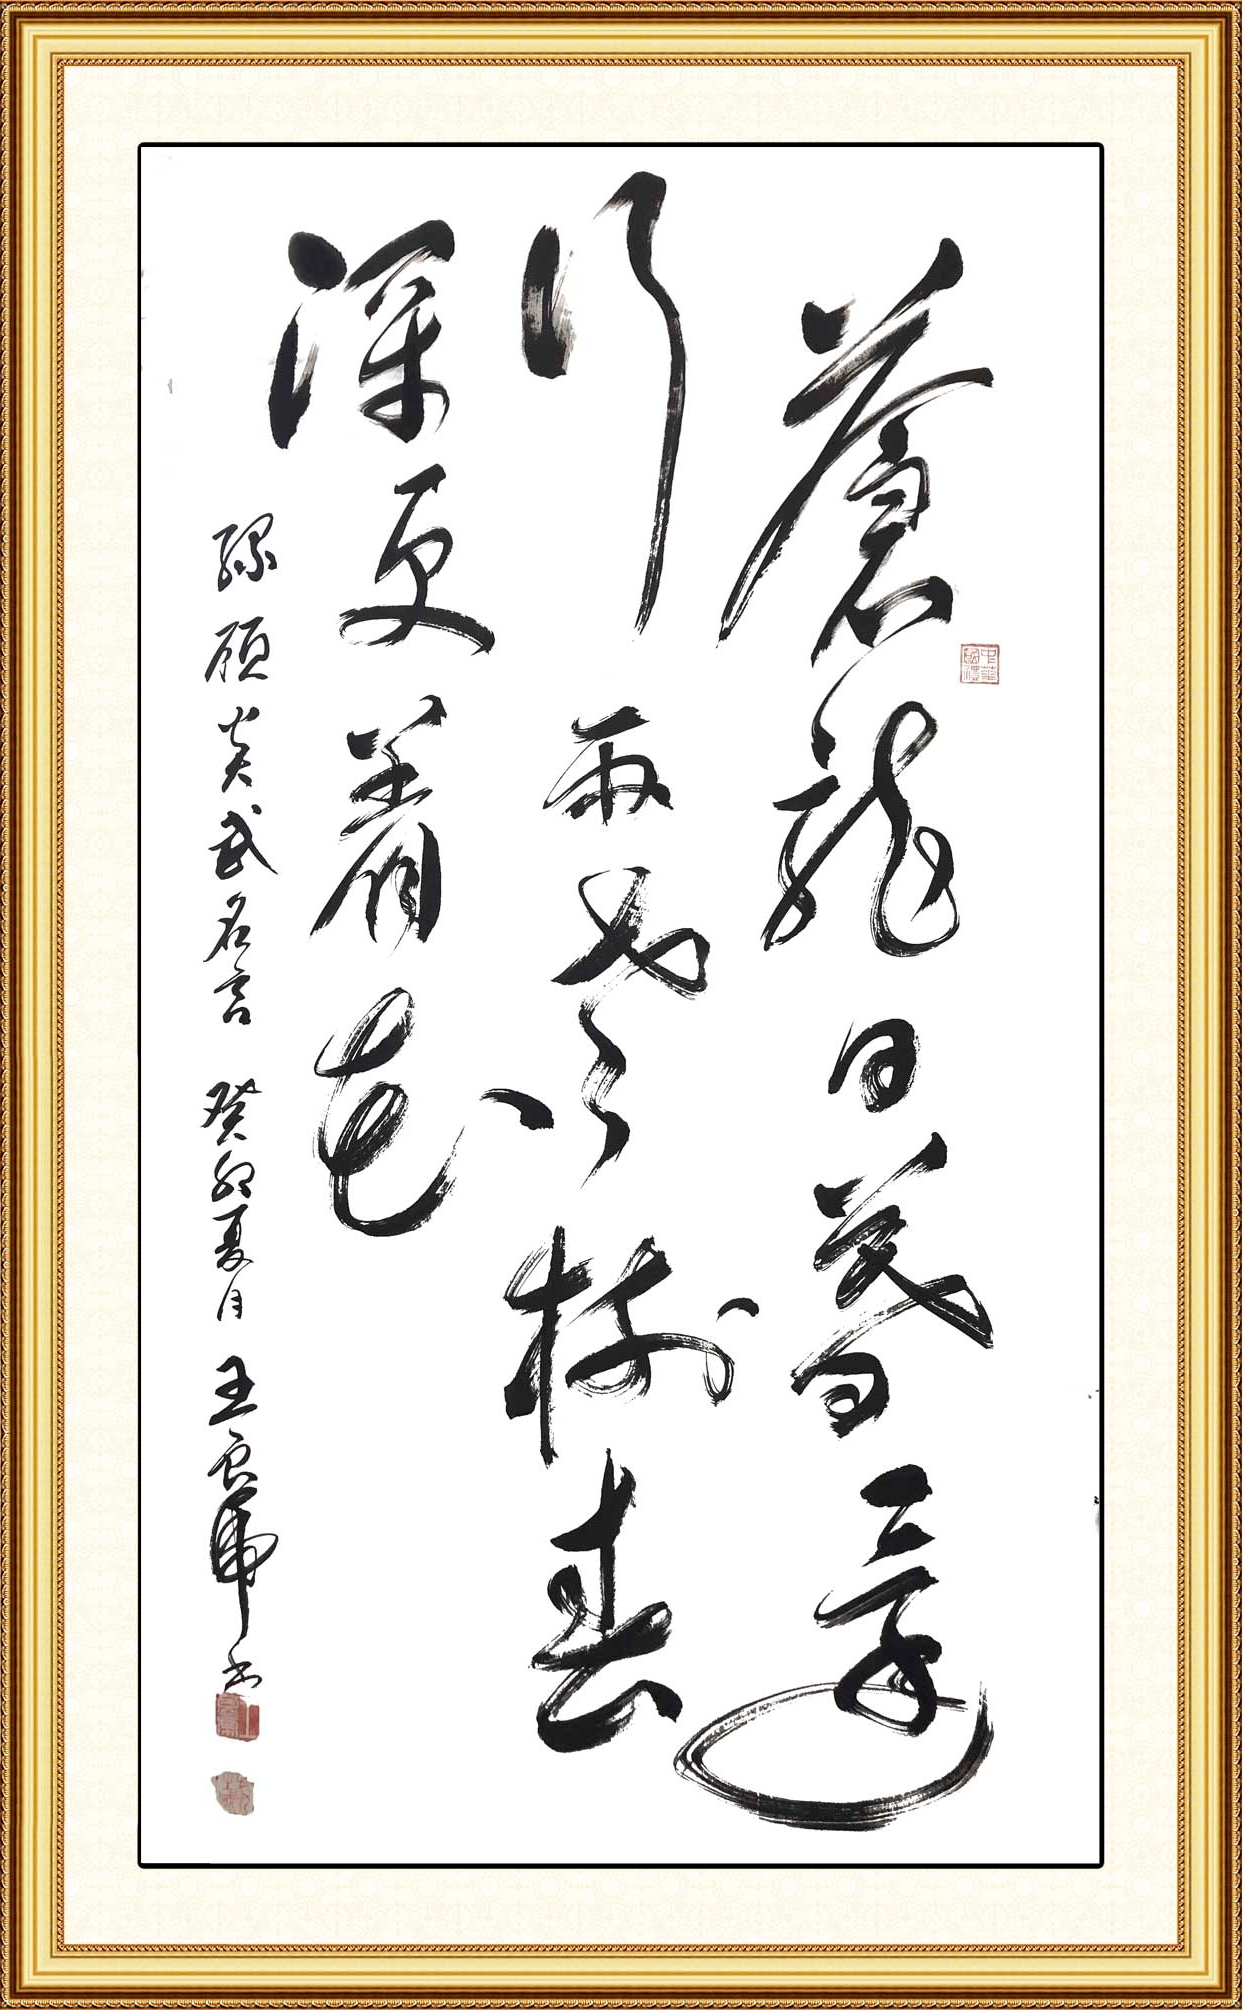 蒼龍日暮還
行雨老樹春
深更着花
錄顧炎武名言 癸卯夏月 王良虎书